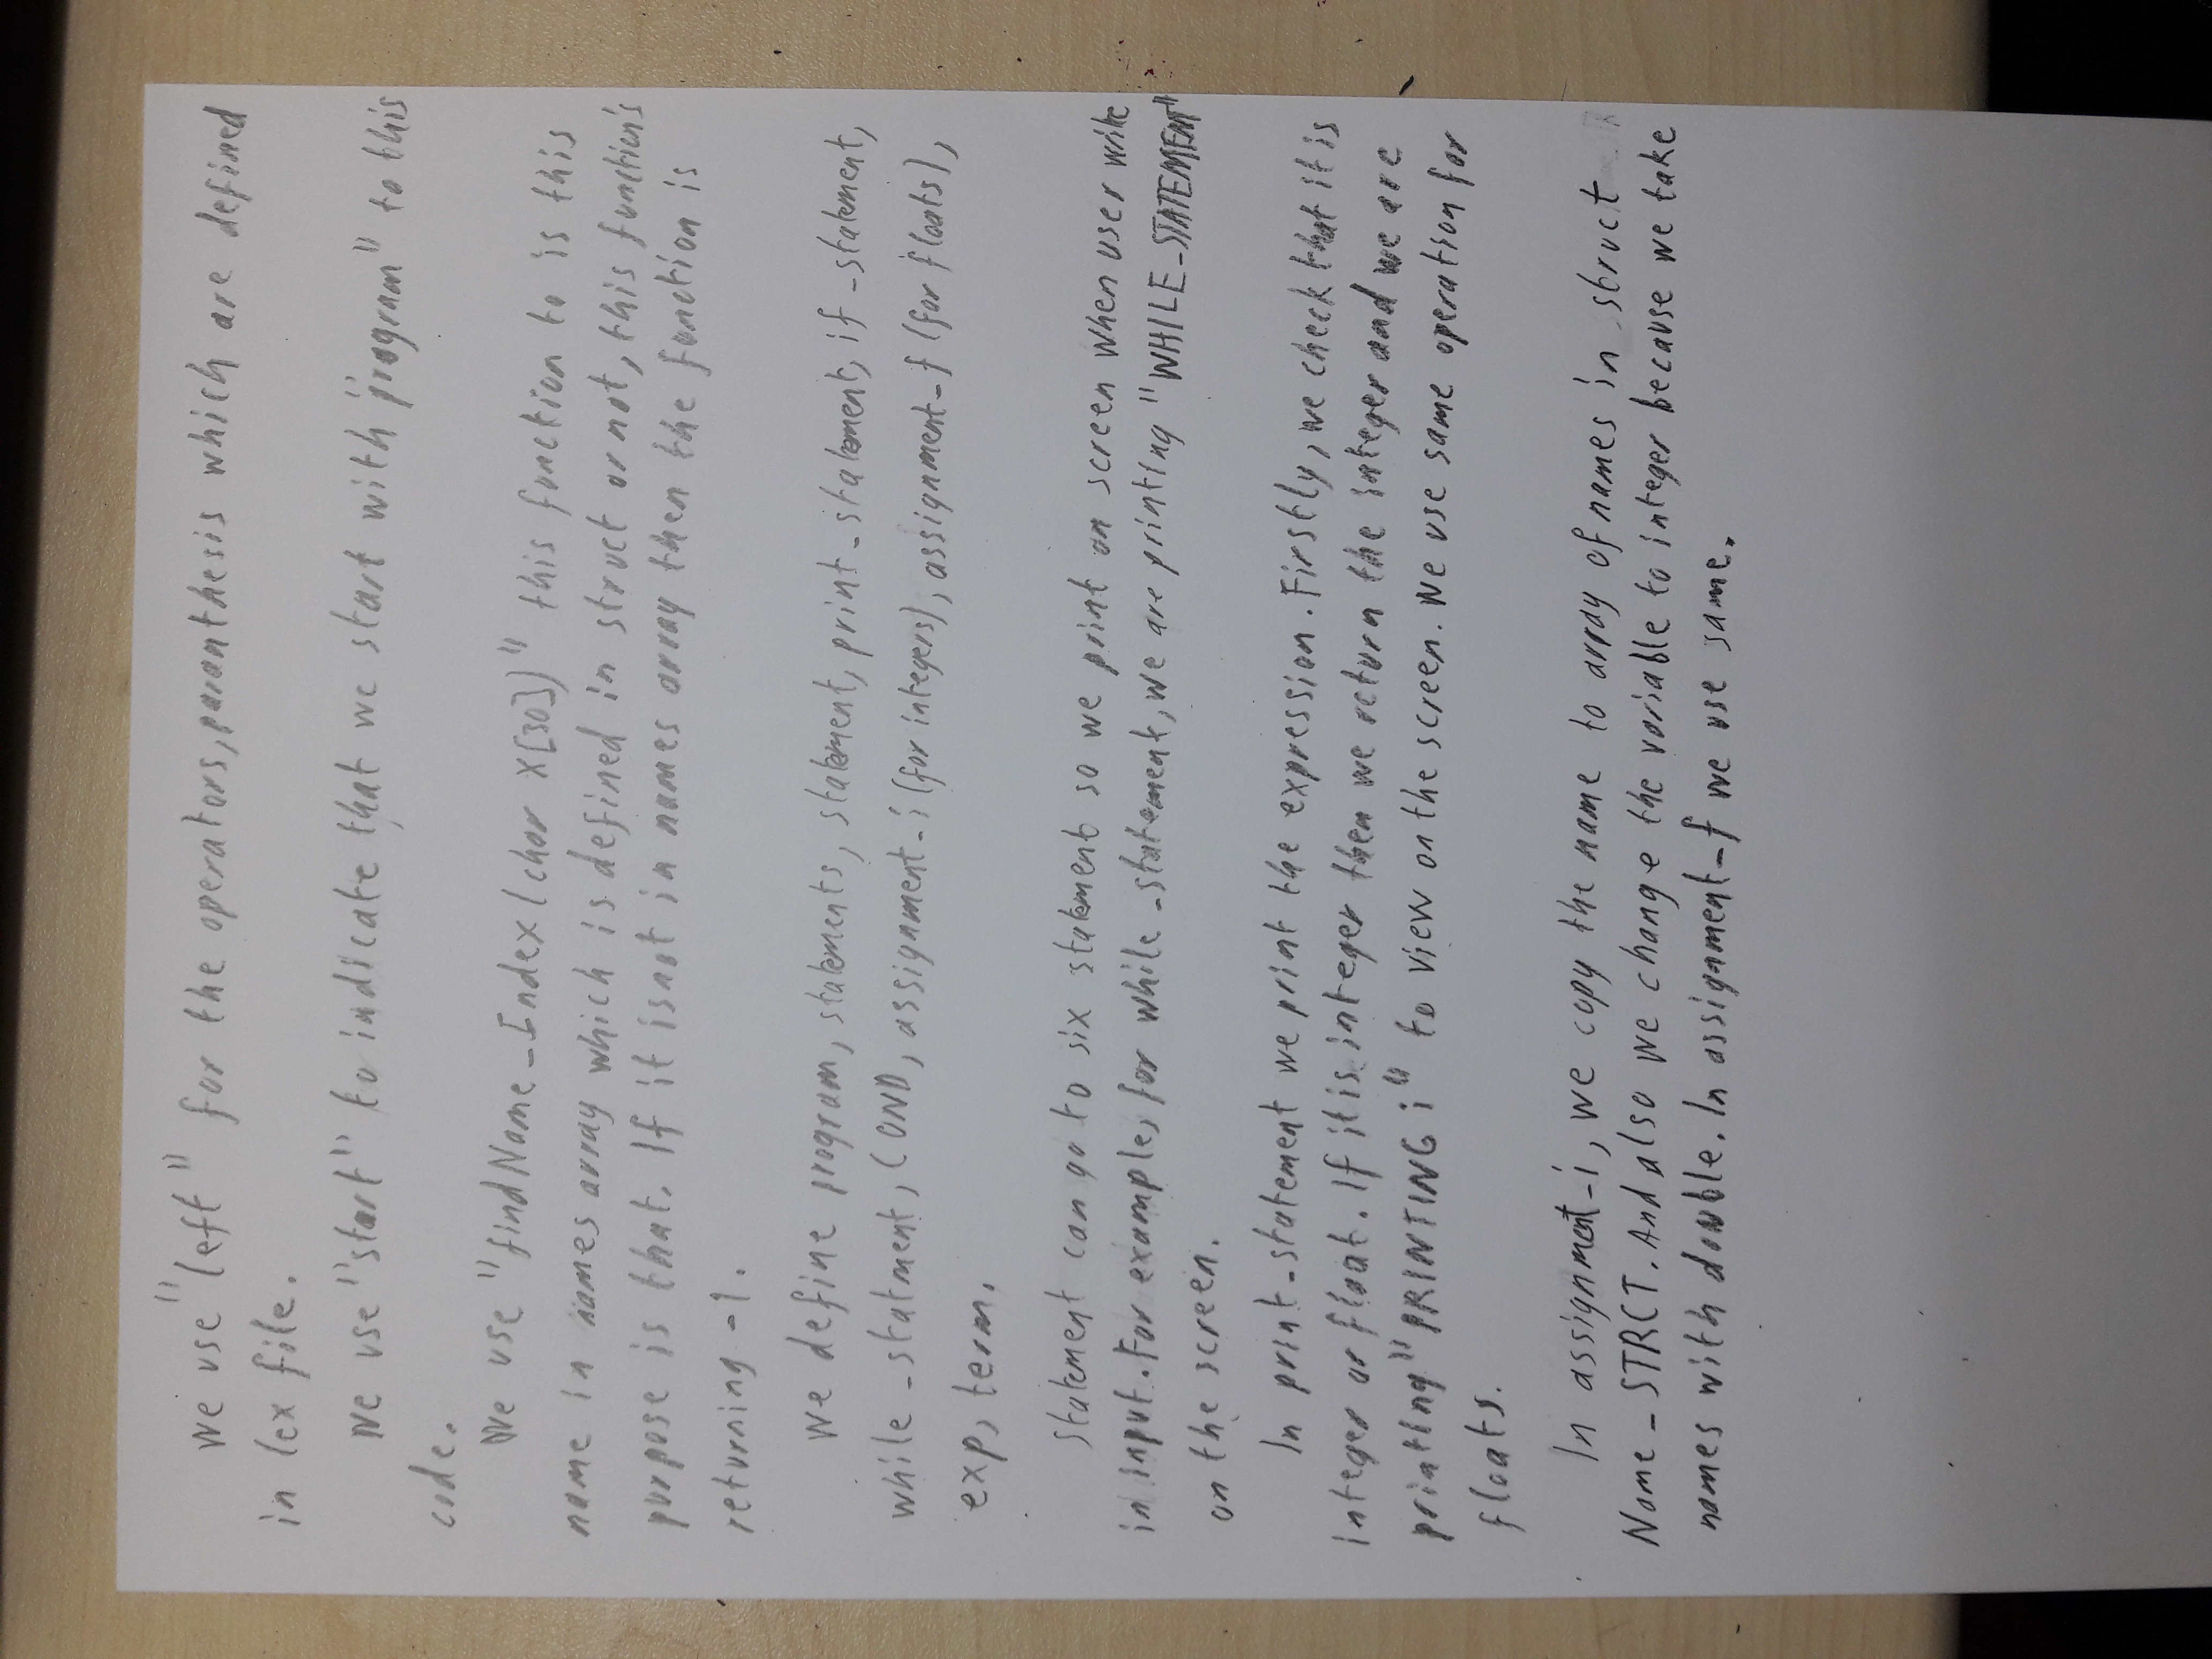 We use "left" for the operators, paranthesis which are defined
in lex file.
We use "start" to indicate that we start with "program" to this
code.
We use "findName_Index(char X[30])" this function to is this
name in names array which is defined in struct or not, this function's
purpose is that. If it is not in names array then the function is
returning -1.
We define program, statements, statement, print_statement, if_statement,
while_statment, COND, assignment_i (for integers), assignment_f (for floats),
exp, term.
Statement can go to six statement so we print on screen when user write
in input. For example, for while_statement, we are printing "WHILE_STATEMENT"
on the screen.
In print_statement we print the expression. Firstly, we check that it is
integer or float. If it is integer then we return the integer and we are
printing "PRINTING i" to view on the screen. We use same operation for
floats.
In assignment_i, we copy the name to array of names in struct
Name_STRCT. And also we change the variable to integer because we take
names with double. In assignment_f we use same.